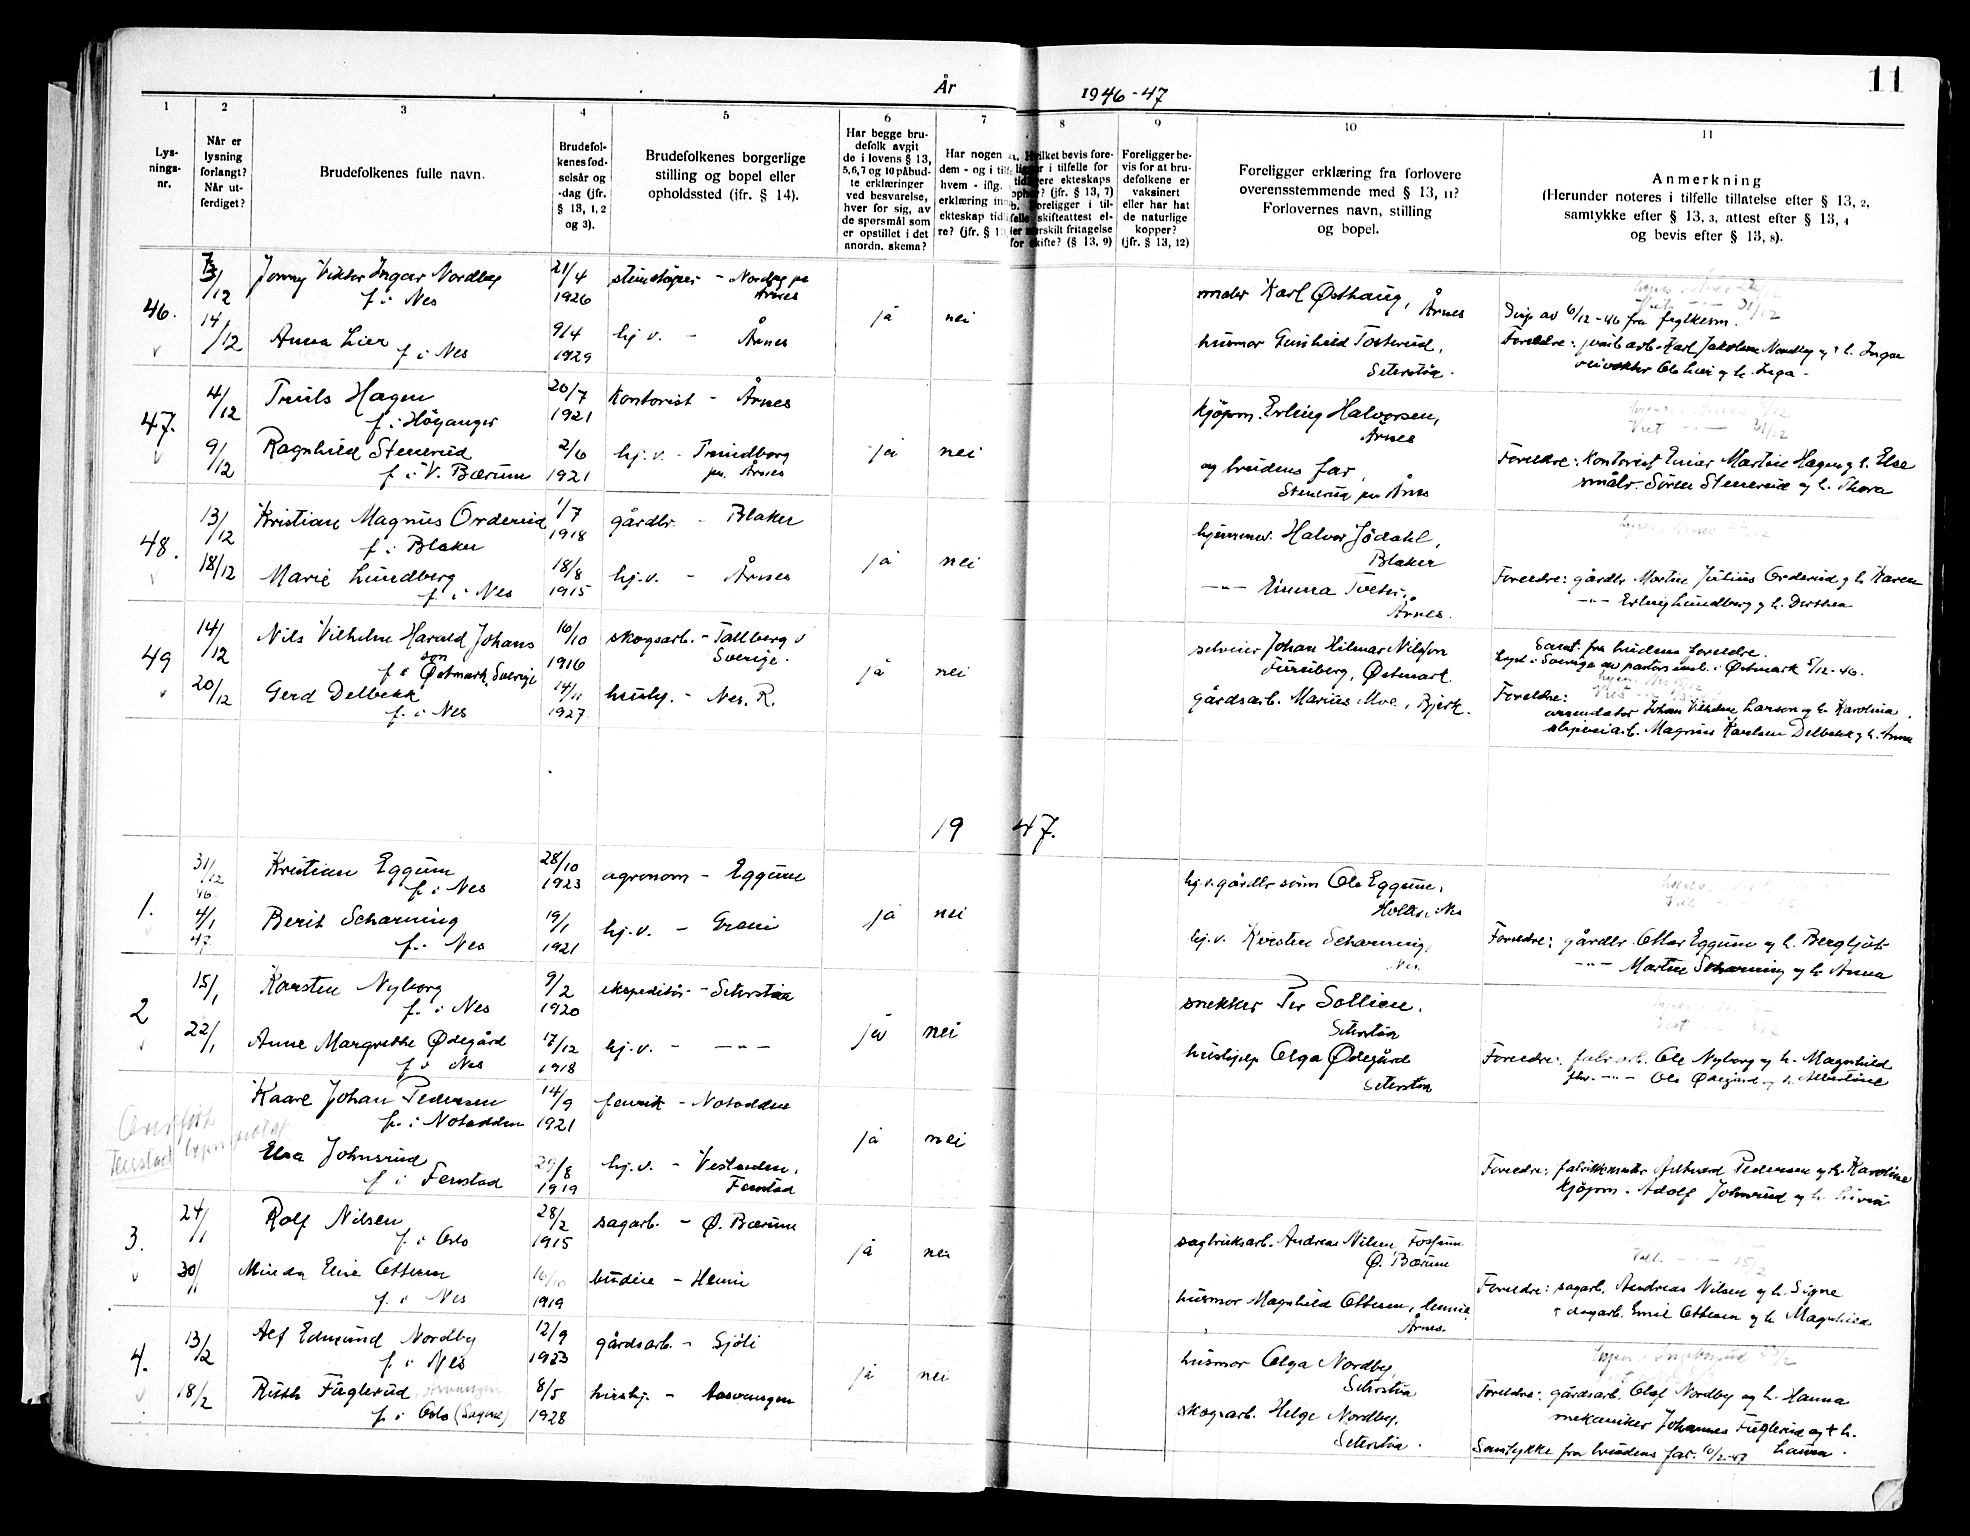 11
År 1946-47
1 2 3 4 5 6 7 8 9 10 11
Lys-
nings-
nr.
Når er
lysning
forlangt?
Når ut-
ferdiget?
Brudefolkenes fulle navn.
Brudefol-
kenes fød-
selsår og
-dag (jfr.
§ 13, 1, 2
og 3).
Brudefolkenes borgerlige
stilling og bopel eller
opholdssted (ifr. § 14).
Har begge bru-
defolk avgit
de i lovens § 13,
5,6,7 og 10 påbud-
te erklæringer
ved besvarelse,
hver for sig, av
de spørsmål som
er opstillet i det
anordn. skema?
Har nogen
dem - og i
hvem - iflg.
erklæring
ekteskap
re? (jfr. §
Hvilket bevis fore-
i tilfelle for
ekteskaps
(jfr. § 13, 7)
Foreligger i til-
skifteattest el-
fritagelse
skifte? (§ 13, 9)
Foreligger be-
vis for at bru-
defolkene er
vaksinert
eller har hat
de naturlige
kopper?
(jfr. § 13, 12)
Foreligger erklæring fra forlovere
overensstemmende med § 13, 11?
Forlovernes navn, stilling
og bopel.
Anmerkning
(Herunder noteres i tilfelle tillatelse efter § 13, 2,
samtykke efter § 13, 3, attest efter § 13, 4
og bevis efter § 13, 8).
46. /12 Jonny Viktor Ingar Nordby 21/4 - Nordby pr
f. i Nes 1926 Årnes
ja nei
Karl Østhaug, Årnes
av 6/12-46 fra
14/12 Anna Lier 9/4 hj. v. - Årnes
f. i Nes 1929
husmor Gunhild Tosterud,
Seterstøa.
Foreldre: Karl Jakobsen Nordby og h. Ingar
Ole Lier og h. Inga -
47. 4/12 Truls Hagen 20/7 Kontorist - Årnes
f. i Høyanger 1921
ja nei
kjøpm. Erling Halvorsen,
Årnes
31/12
9/12 Ragnhild Stenerud 2/6 hj. v. - Trondborg
f. i V. Bærum 1921 pr. Årnes
og brudens far,
Stenerud pr Årnes
Foreldre: Kontorist Einar Martin Hagen og h. Else
småbr. Sören Stenerud og h. Thora
48. 13/12 Kristian Magnus Orderud 1/7 gårdbr. - Blaker
f. i Blaker 1918
ja nei
Halvor Jödahl,
Blaker
18/12 Marie Lundberg 18/8 hj. v. - Årnes
f. i Nes 1915
-"- Emma
Årnes.
Foreldre: gårdbr Martin Julius Orderud og h Karen
-"- Erling Lundberg og h. Dorthea
49 14/12 Nils Vilhelm Harald Johans 16/10 skogsarb. - Tallberg i
son
f. i Østmark, Sverige 1916 Sverige.
ja nei
Johan Hilmar Nilsson
Østmark.
Samt. fra brudens foreldre.
Lyst i Sverige av pastorsemb. i Østmark 5/12-46.
20/12 Gerd Delbekk 14/11 - Nes, R.
f. i Nes 1927
gårdsarb. Marius Moe, Bjerk.
Foreldre:
arrendator Johan Vilhelm Larson og h. Karolina,
arb. Magnus Karelsen Delbekk og h. Anna
19 47.
1. 31/12 46 Kristian Eggum 28/10 agronom - Eggum
f. i Nes 1923
ja nei
hj. v. gårdbr sønn Ole Eggum,
Nes
4/1 47 Berit Scharning 19/1 hj. v. -
f. i Nes 1921
hj. v. Kirsten Scharning,
Nes
Foreldre: gårdbr. Ottar Eggum og h. Bergljot
-"- Martin Scharning og h Anna
2 15/1 Karsten Nyborg 9/2 ekspeditør - Seterstøa
f. i Nes 1920
ja nei
snekker Per Sollien.
Seterstøa
22/1 Anne Margrethe Ødegård 17/12 hj. v. - -"-
f. i Nes 1918
hushjelp Olga Ødegård
Seterstøa
Foreldre: fabr. arb. Ole Nyborg og h. Magnhild
-"- Ole Ødegård og h. Albertine
Kaare Johan Pedersen 14/9 fenrik - Notodden
f. i Notodden 1921
ja nei
Elsa Johnsrud 29/8 hj. v. - Vestenden,
f. i Fenstad 1919 Fenstad
Foreldre: Pedersen og h. Karoline
kjøpm. Adolf Johnsrud og h.
3. 24/1 Rolf Nilsen 28/2 sagarb. - Ø. Bærum
f. i Oslo 1915
ja nei
sagbruksarb. Andreas Nilsen, Fossum
Ø. Bærum
30/1 Minda Elise Ottesen budeie -
f. i Nes 1919
husmor Magnhild Ottesen,
Årnes.
Foreldre: sagarb. Andreas Nilsen og h. Signe
dagarb. Emil Ottesen og h. Magnhild
4. 13/2 Alf Edmund Nordby 12/9 gårdsarb. - Sjøli
f. i Nes 1923
ja nei
husmor Olga Nordby,
Seterstøa
18/2 Ruth Fuglerud 8/5 hushj. - Aasvangen
f. i Oslo (Sagene) 1928
skogsarb. Helge Nordby,
Seterstøa.
Foreldre: gårdsarb. Olaf Nordby og h. Hanna
mekaniker Johannes Fuglerud og † h.
Laura.
Samtykke fra brudens far. 10/2-47